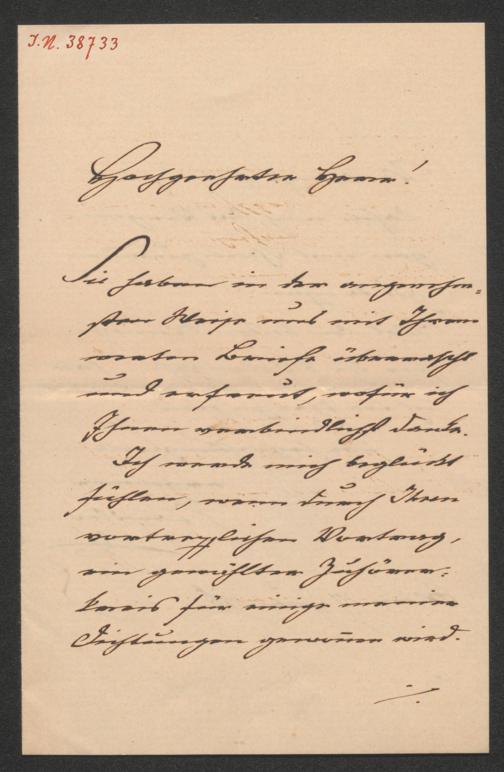 I.N. 38733
Hochgeehrter Herr!
Sie haben in der angenehm=
sten Weise uns mit Ihrem
werten Briefe überrascht
und erfreut, wofür ich
Ihnen verbindlichst danke.
Ich werde mich beglückt
fühlen, wenn durch Ihren
vortrefflichen Vortrag,
ein gewählter Zuhörer=
kreis für einige meiner
Dichtungen gewonnen wird.
./.